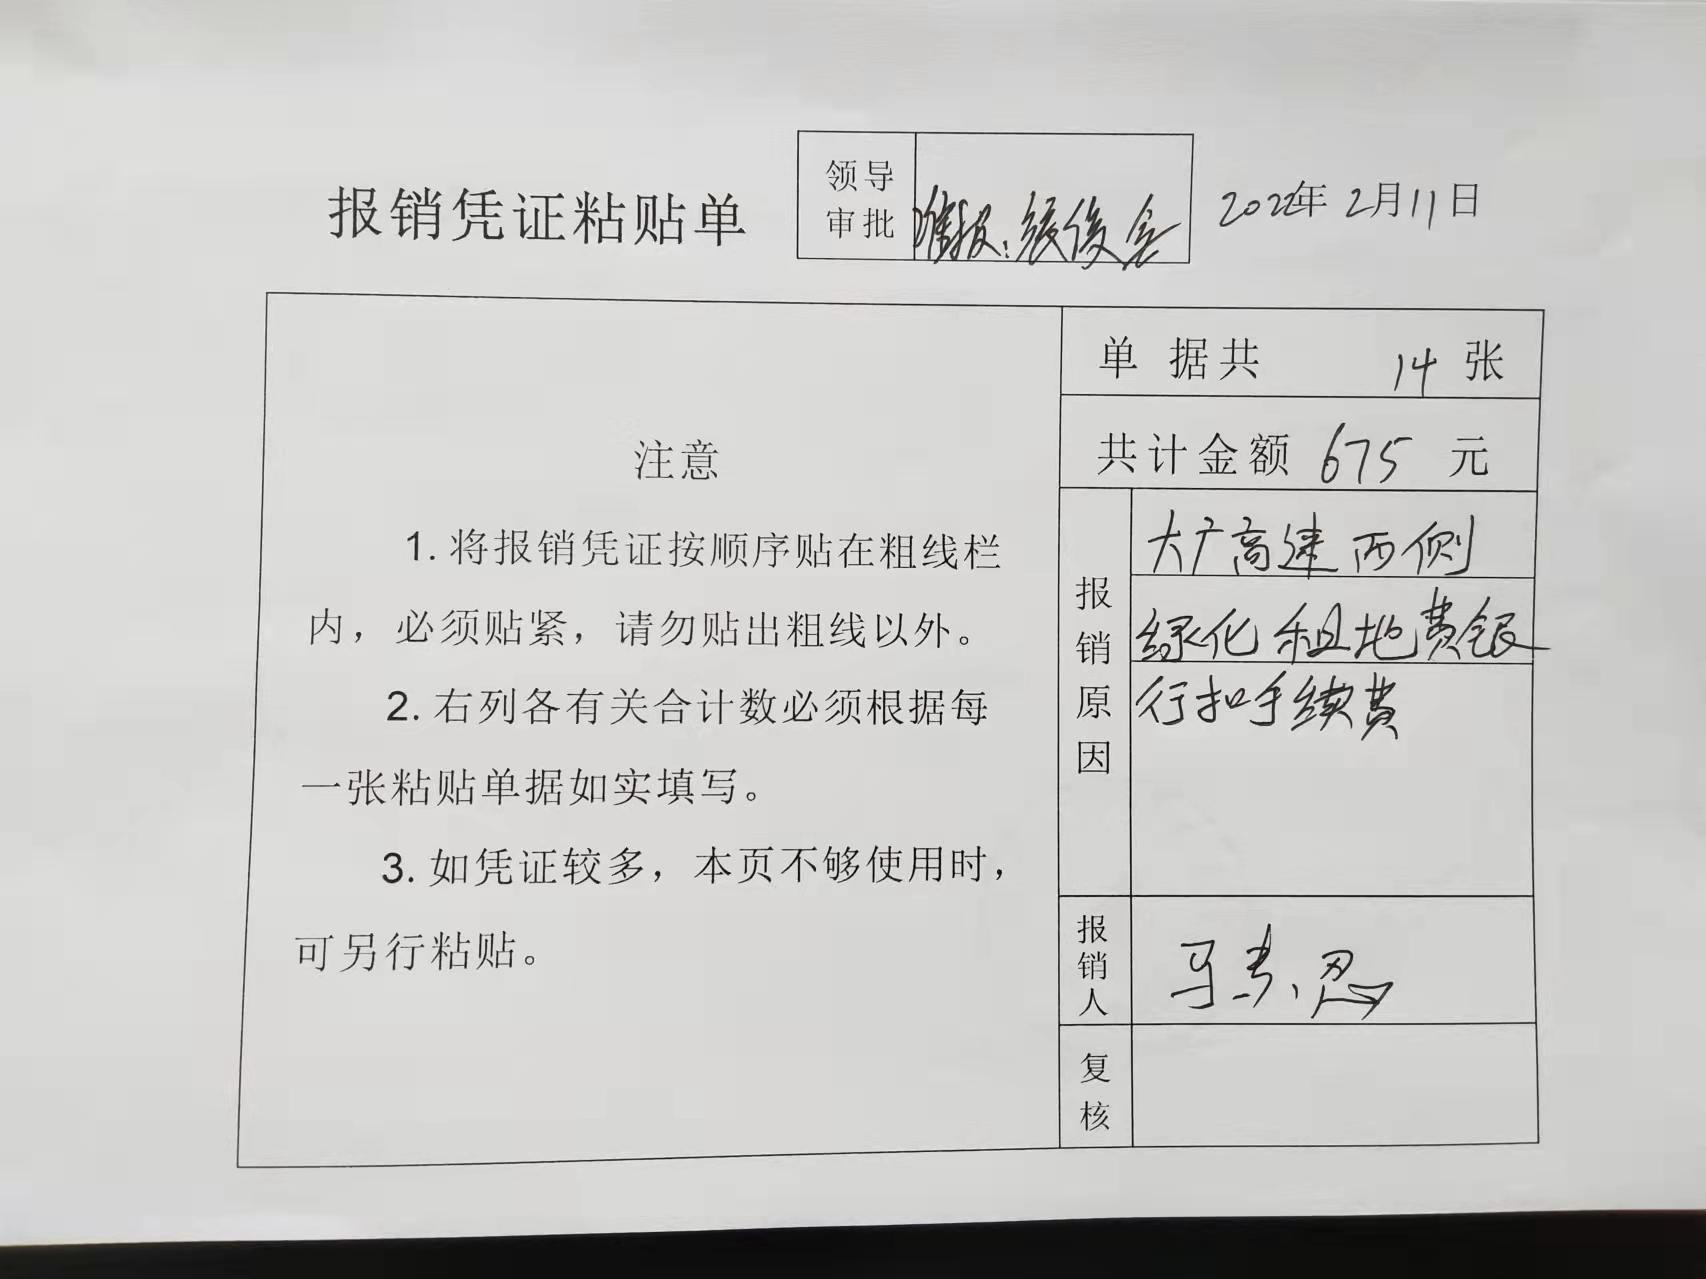 报销凭证粘贴单
领导
审批
准报:张俊
2022年2月11日
注意
1. 将报销凭证按顺序贴在粗线栏
内，必须贴紧，请勿贴出粗线以外。
2. 右列各有关合计数必须根据每
一张粘贴单据如实填写。
3. 如凭证较多，本页不够使用时，
可另行粘贴。
单 据共 14 张
共计金额 675 元
报销原因
大广高速两侧
绿化租地费银
行扣手续费
报销人
马 忍
复核